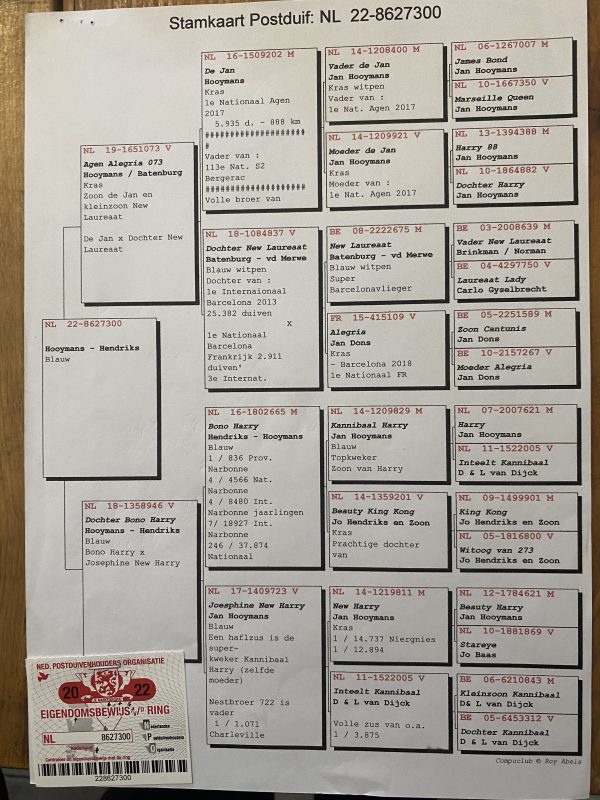 Stamkaart Postduif: NL 22-8627300
NL 22-8627300
Hooymans - Hendriks
Blauw
NL 19-1651073 V
Agen Alegria 073
Hooymans / Batenburg
Kras
Zoon de Jan en
kleinzoon New
Laureaat
De Jan x Dochter New
Laureaat
NL 18-1358946 V
Dochter Bono Harry
Hooymans - Hendriks
Blauw
Bono Harry x
Josephine New Harry
NL 16-1509202 M
De Jan
Hooymans
Kras
1e Nationaal Agen
2017
5.935 d. - 888 km
######################
#
Vader van :
113e Nat. S2
Bergerac
######################
Volle broer van
NL 18-1084837 V
Dochter New Laureaat
Batenburg - vd Merwe
Blauw witpen
Dochter van :
1e Internaionaal
Barcelona 2013
25.382 duiven
X
1e Nationaal
Barcelona
Frankrijk 2.911
duiven'
3e Internat.
NL 16-1802665 M
Bono Harry
Hendriks - Hooymans
Blauw
1 / 836 Prov.
Narbonne
4 / 4566 Nat.
Narbonne
4 / 8480 Int.
Narbonne jaarlingen
7/ 18927 Int.
Narbonne
246 / 37.874
Nationaal
NL 17-1409723 V
Joesphine New Harry
Jan Hooymans
Blauw
Een haflzus is de
super-
kweker Kannibaal
Harry (zelfde
moeder)
Nestbroer 722 is
vader
1 / 1.071
Charleville
NL 14-1208400 M
Vader de Jan
Jan Hooymans
Kras witpen
Vader van :
1e Nat. Agen 2017
NL 14-1209921 V
Moeder de Jan
Jan Hooymans
Kras
Moeder van :
1e Nat. Agen 2017
BE 08-2222675 M
New Laureaat
Batenburg - vd Merwe
Blauw witpen
Super
Barcelonavlieger
FR 15-415109 V
Alegria
Jan Dons
Kras
- Barcelona 2018
1e Nationaal FR
NL 14-1209829 M
Kannibaal Harry
Jan Hooymans
Blauw
Topkweker
Zoon van Harry
NL 14-1359201 V
Beauty King Kong
Jo Hendriks en Zoon
Kras
Prachtige dochter
van
NL 14-1219811 M
New Harry
Jan Hooymans
Kras
1 / 14.737 Niergnies
1 / 12.894
NL 11-1522005 V
Inteelt Kannibaal
D & L van Dijck
Volle zus van o.a.
1 / 3.875
NL 06-1267007 M
James Bond
Jan Hooymans
NL 10-1667350 V
Marseille Queen
Jan Hooymans
NL 13-1394388 M
Harry 88
Jan Hooymans
NL 10-1864882 V
Dochter Harry
Jan Hooymans
BE 03-2008639 M
Vader New Laureaat
Brinkman / Norman
BE 04-4297750 V
Laureaat Lady
Carlo Gyselbrecht
BE 05-2251589 M
Zoon Cantunis
Jan Dons
BE 10-2157267 V
Moeder Alegria
Jan Dons
NL 07-2007621 M
Harry
Jan Hooymans
NL 11-1522005 V
Inteelt Kannibaal
D & L van Dijck
NL 09-1499901 M
King Kong
Jo Hendriks en Zoon
NL 05-1816800 V
Witoog van 273
Jo Hendriks en Zoon
NL 12-1784621 M
Beauty Harry
Jan Hooymans
NL 10-1881869 V
Stareye
Jo Baas
BE 06-6210843 M
Kleinzoon Kannibaal
D& L van Dijck
BE 05-6453312 V
Dochter Kannibaal
D & L van Dijck
Compuclub © Roy Abels
NED. POSTDUIVENHOUDERS ORGANISATIE
20 22
EIGENDOMSBEWIJS v/d RING
NL 8627300
Nederlandse
Postduivenhouders
Organisatie
Controleer dit eigendomsbewijs met de ring
228627300